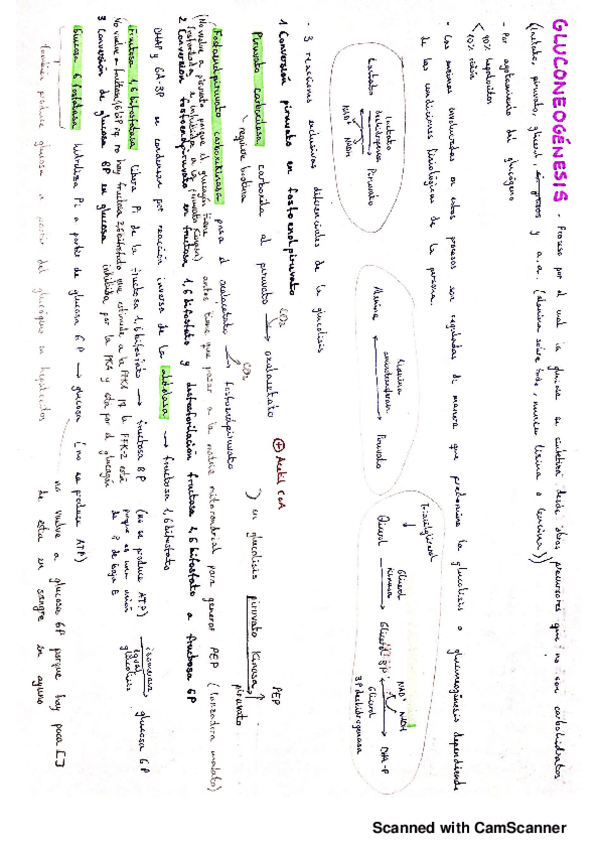 GLUCONEOGÉNESIS - Proceso por el cual la glucosa se sintetiza desde otros precursores que no son carbohidratos
(lactato, piruvato, glicerol y a.a. (alanina sobre todo, nunca lisina o leucina))
- Por agotamiento del glucógeno
90% hepatocitos
10% riñón
- Las enzimas involucradas en estos procesos son reguladas de manera que predomina la glucolisis o gluconeogénesis dependiendo
de las condiciones fisiológicas de la persona.
Lactato → Piruvato
lactato deshidrogenasa
NAD+ NADH
Alanina → Piruvato
Alanina aminotransferasa
Triacilglicerol
↓
Glicerol → Glicerol 3P → DHA-P
Glicerol kinasa
NAD+ NADH
Glicerol 3P deshidrogenasa
- 3 reacciones exclusivas diferenciales de la glucolisis
1 Conversión piruvato en fosfoenolpiruvato
Piruvato carboxilasa carboxila al piruvato → oxalacetato ⊕ Acetil CoA
CO2
requiere biotina
Fosfoenolpiruvato carboxikinasa pasa el oxalacetato → fosfoenolpiruvato
CO2
en glucolisis piruvato kinasa
PEP
piruvato
(No vuelve a piruvato porque el glucagón tiene
fosforilada e inhibida a la piruvato kinasa)
antes tiene que pasar a la matriz mitocondrial para generar PEP (lanzadera malato)
2 Conversión fosfoenolpiruvato en fructosa 1,6 bifosfato y desfosforilación fructosa 1,6 bifosfato a fructosa 6P
DHAP y GA-3P se condensan por reacción inversa de la aldolasa → fructosa 1,6 bifosfato
Fructosa 1,6 bifosfatasa libera Pi de la fructosa 1,6 bifosfato → fructosa 6P (no se produce ATP)
porque es una unión
de P de baja E
isomerasa
igual glucolisis
glucosa 6P
No vuelve a fructosa 1,6 bP pq no hay fructosa 2,6 bifosfato que estimule a la PFK1 pq la PFK-2 está
inhibida por la PKA y esta por el glucagón
3 Conversión de glucosa 6P en glucosa
Glucosa 6 fosfatasa hidroliza Pi a partir de glucosa 6P → glucosa (no se produce ATP)
no vuelve a glucosa 6P porque hay poca []
de esta en sangre en ayuno
también produce glucosa a partir del glucógeno en hepatocitos
Scanned with CamScanner